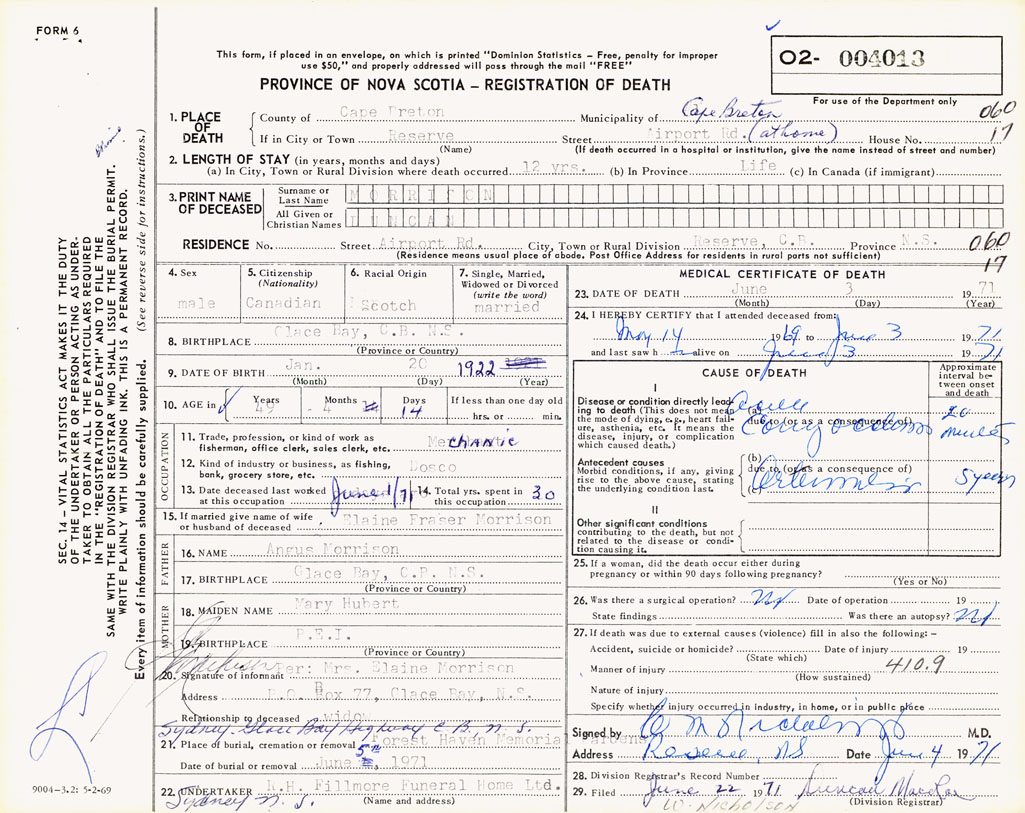 FORM 6
This form, if placed in an envelope, on which is printed "Dominion Statistics – Free, penalty for improper
use $50," and properly addressed will pass through the mail "FREE"
PROVINCE OF NOVA SCOTIA – REGISTRATION OF DEATH
O2- 004013
For use of the Department only
060
17
1. PLACE OF DEATH
County of Cape Breton Municipality of Cape Breton
If in City or Town Reserve Street Airport Rd. (at home) House No.
(Name) (If death occurred in a hospital or institution, give the name instead of street and number)
2. LENGTH OF STAY (in years, months and days)
(a) In City, Town or Rural Division where death occurred 12 yrs. (b) In Province Life (c) In Canada (if immigrant)
3. PRINT NAME OF DECEASED
Surname or Last Name MORRISON
All Given or Christian Names DUNCAN
RESIDENCE No. Street Airport Rd. City, Town or Rural Division Reserve, C.B. Province N.S.
(Residence means usual place of abode. Post Office Address for residents in rural parts not sufficient)
060
17
4. Sex
male
5. Citizenship
(Nationality)
Canadian
6. Racial Origin
Scotch
7. Single, Married,
Widowed or Divorced
(write the word)
married
8. BIRTHPLACE Glace Bay, C.B. N.S.
(Province or Country)
9. DATE OF BIRTH Jan. 20 1922
(Month) (Day) (Year)
10. AGE in Years Months Days If less than one day old
49 4 14 hrs. or min.
OCCUPATION
11. Trade, profession, or kind of work as
fisherman, office clerk, sales clerk, etc. Mechanic
12. Kind of industry or business, as fishing,
bank, grocery store, etc. Dosco
13. Date deceased last worked
at this occupation June 1/71
14. Total yrs. spent in
this occupation 30
15. If married give name of wife
or husband of deceased Elaine Fraser Morrison
FATHER
16. NAME Angus Morrison
17. BIRTHPLACE Glace Bay, C.B. N.S.
MOTHER
18. MAIDEN NAME Mary Hubert
19. BIRTHPLACE P.E.I.
(Province or Country)
20. Signature of informant Per: Mrs. Elaine Morrison
Address P.O. Box 77, Glace Bay, N.S.
Relationship to deceased widow
Sydney-Glace Bay Highway C.B. N.S.
21. Place of burial, cremation or removal Forest Haven Memorial Gardens
Date of burial or removal June 5th, 1971
22. UNDERTAKER R.H. Fillmore Funeral Home Ltd.
Sydney N.S. (Name and address)
MEDICAL CERTIFICATE OF DEATH
23. DATE OF DEATH June 3 1971
(Month) (Day) (Year)
24. I HEREBY CERTIFY that I attended deceased from:
May 14 1969 to June 3 1971
and last saw h alive on June 3 1971
CAUSE OF DEATH
Approximate
interval be-
tween onset
and death
I
Disease or condition directly lead-
ing to death (This does not mean
the mode of dying, e.g., heart fail-
ure, asthenia, etc. It means the
disease, injury, or complication
which caused death.)
(a)
due to (or as a consequence of)
20
minutes
Antecedent causes
Morbid conditions, if any, giving
rise to the above cause, stating
the underlying condition last.
(b)
due to (or as a consequence of)
(c)
5 years
II
Other significant conditions
contributing to the death, but not
related to the disease or condi-
tion causing it.
25. If a woman, did the death occur either during
pregnancy or within 90 days following pregnancy?
(Yes or No)
26. Was there a surgical operation? No Date of operation 19
State findings Was there an autopsy? No
27. If death was due to external causes (violence) fill in also the following: –
Accident, suicide or homicide? Date of injury 19
(State which)
410.9
Manner of injury
(How sustained)
Nature of injury
Specify whether injury occurred in industry, in home, or in public place
Signed by M.D.
Address Reserve, NS Date June 4 1971
28. Division Registrar's Record Number
29. Filed June 22 1971 Duncan
W. Nicholson (Division Registrar)
SEC. 14 – VITAL STATISTICS ACT MAKES IT THE DUTY
OF THE UNDERTAKER OR PERSON ACTING AS UNDER-
TAKER TO OBTAIN ALL THE PARTICULARS REQUIRED
IN THE "REGISTRATION OF DEATH" AND TO FILE THE
SAME WITH THE DIVISION REGISTRAR WHO SHALL ISSUE THE BURIAL PERMIT.
WRITE PLAINLY WITH UNFADING INK. THIS IS A PERMANENT RECORD.
Every item of information should be carefully supplied. (See reverse side for instructions.)
9004-3.2: 5-2-69